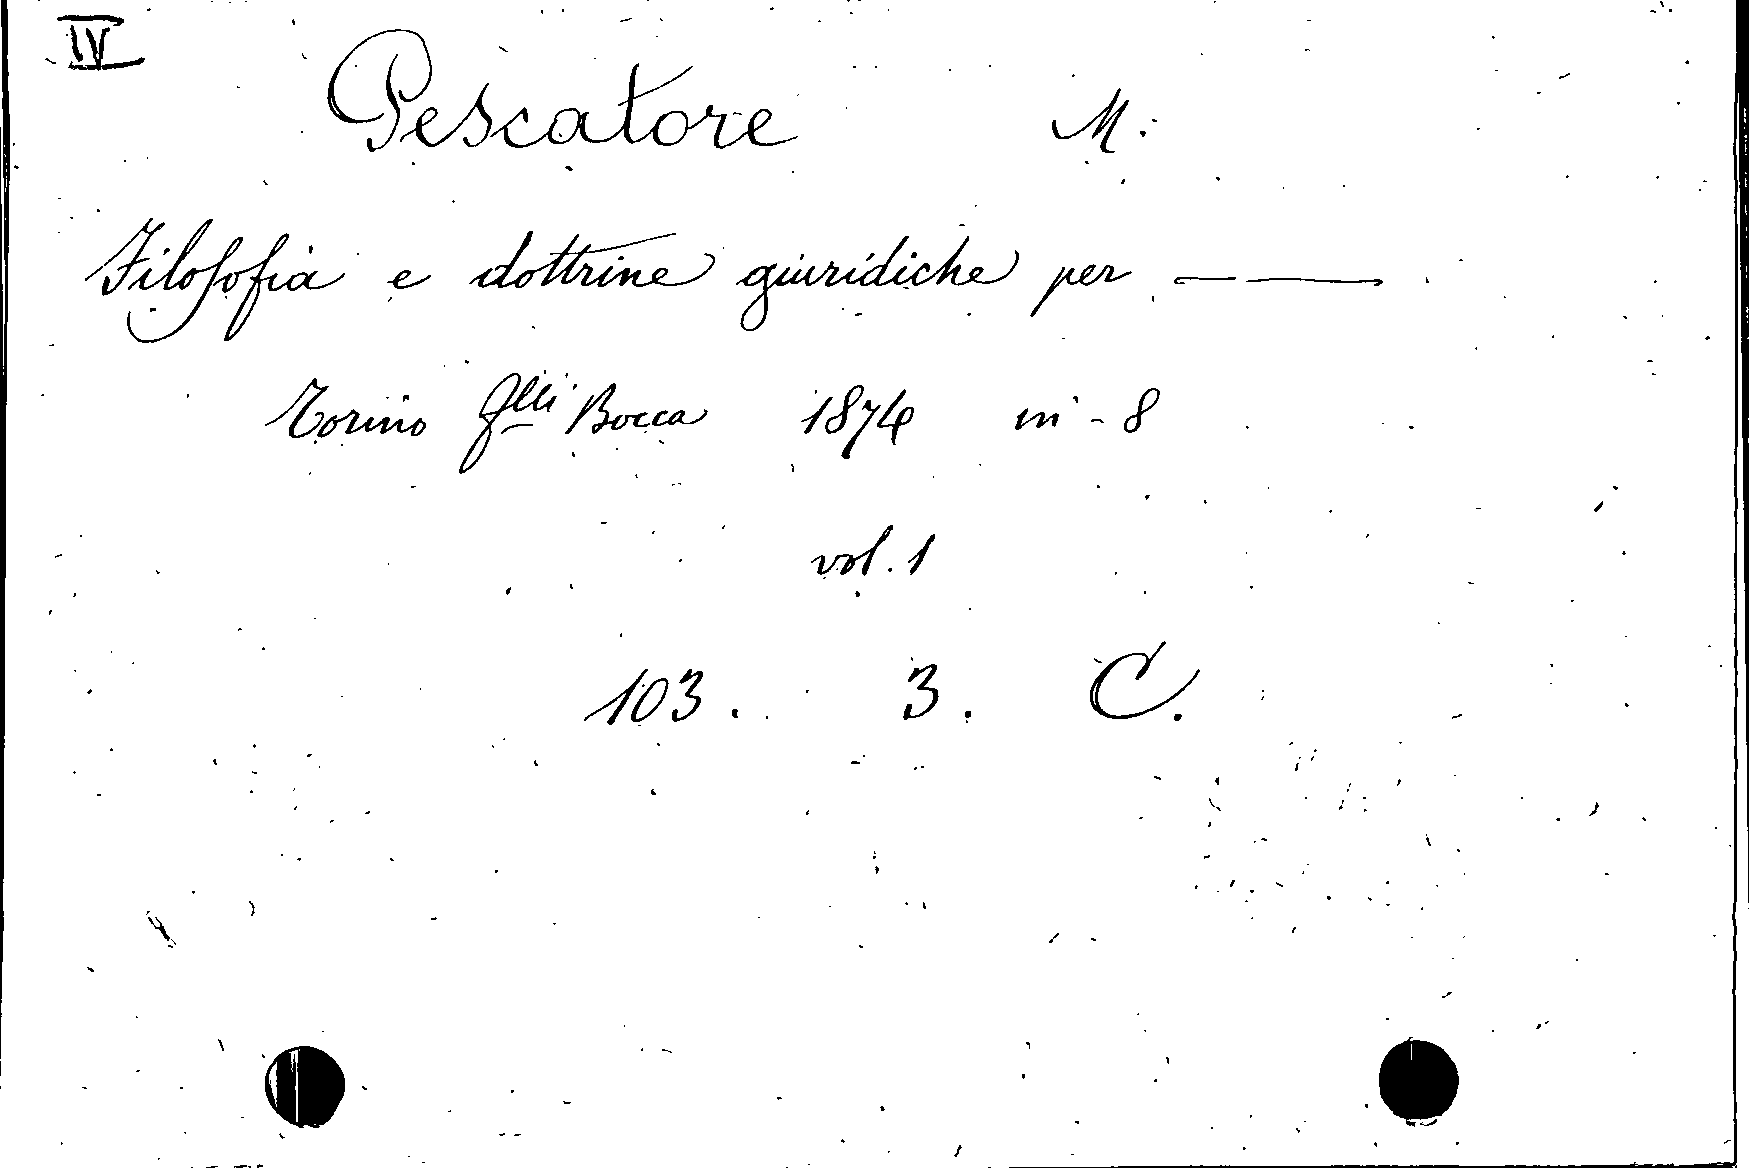 IV
Pescatore M.
Filosofia e dottrine giuridiche per — ——
Torino Flli Bocca 1874 in-8
vol. 1
103. 3. C.